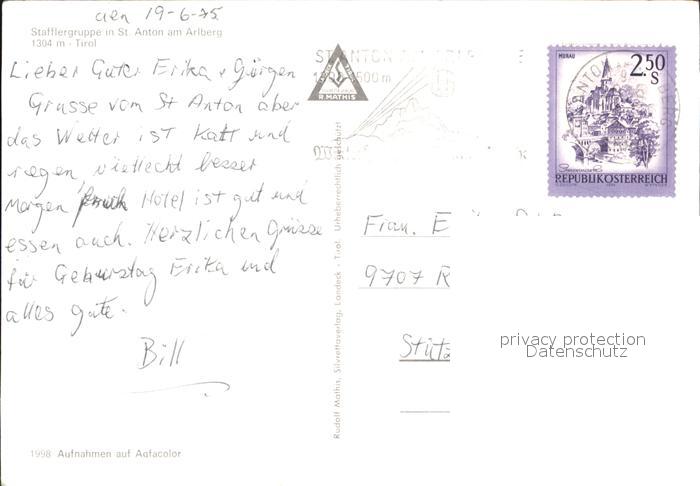 den 19-6-75
Stafflergruppe in St. Anton am Arlberg
1304 m - Tirol
Lieber Guter Erika + Jürgen
Grusse vom St Anton aber
das Wetter ist Kalt und
regen vielleicht besser
Morgen Hotel ist gut und
essen auch. Herzlichen Grüsse
für Geburstag Erika und
alles gute.
Bill
1998 Aufnahmen auf Agfacolor
Rudolf Mathis, Silvrettaverlag, Landeck - Tirol Urheberrechtlich geschützt
R. MATHIS
ST. ANTON
MURAU
2.50
S
REPUBLIK ÖSTERREICH
Frau. E
9707 R
Stütz
privacy protection
Datenschutz